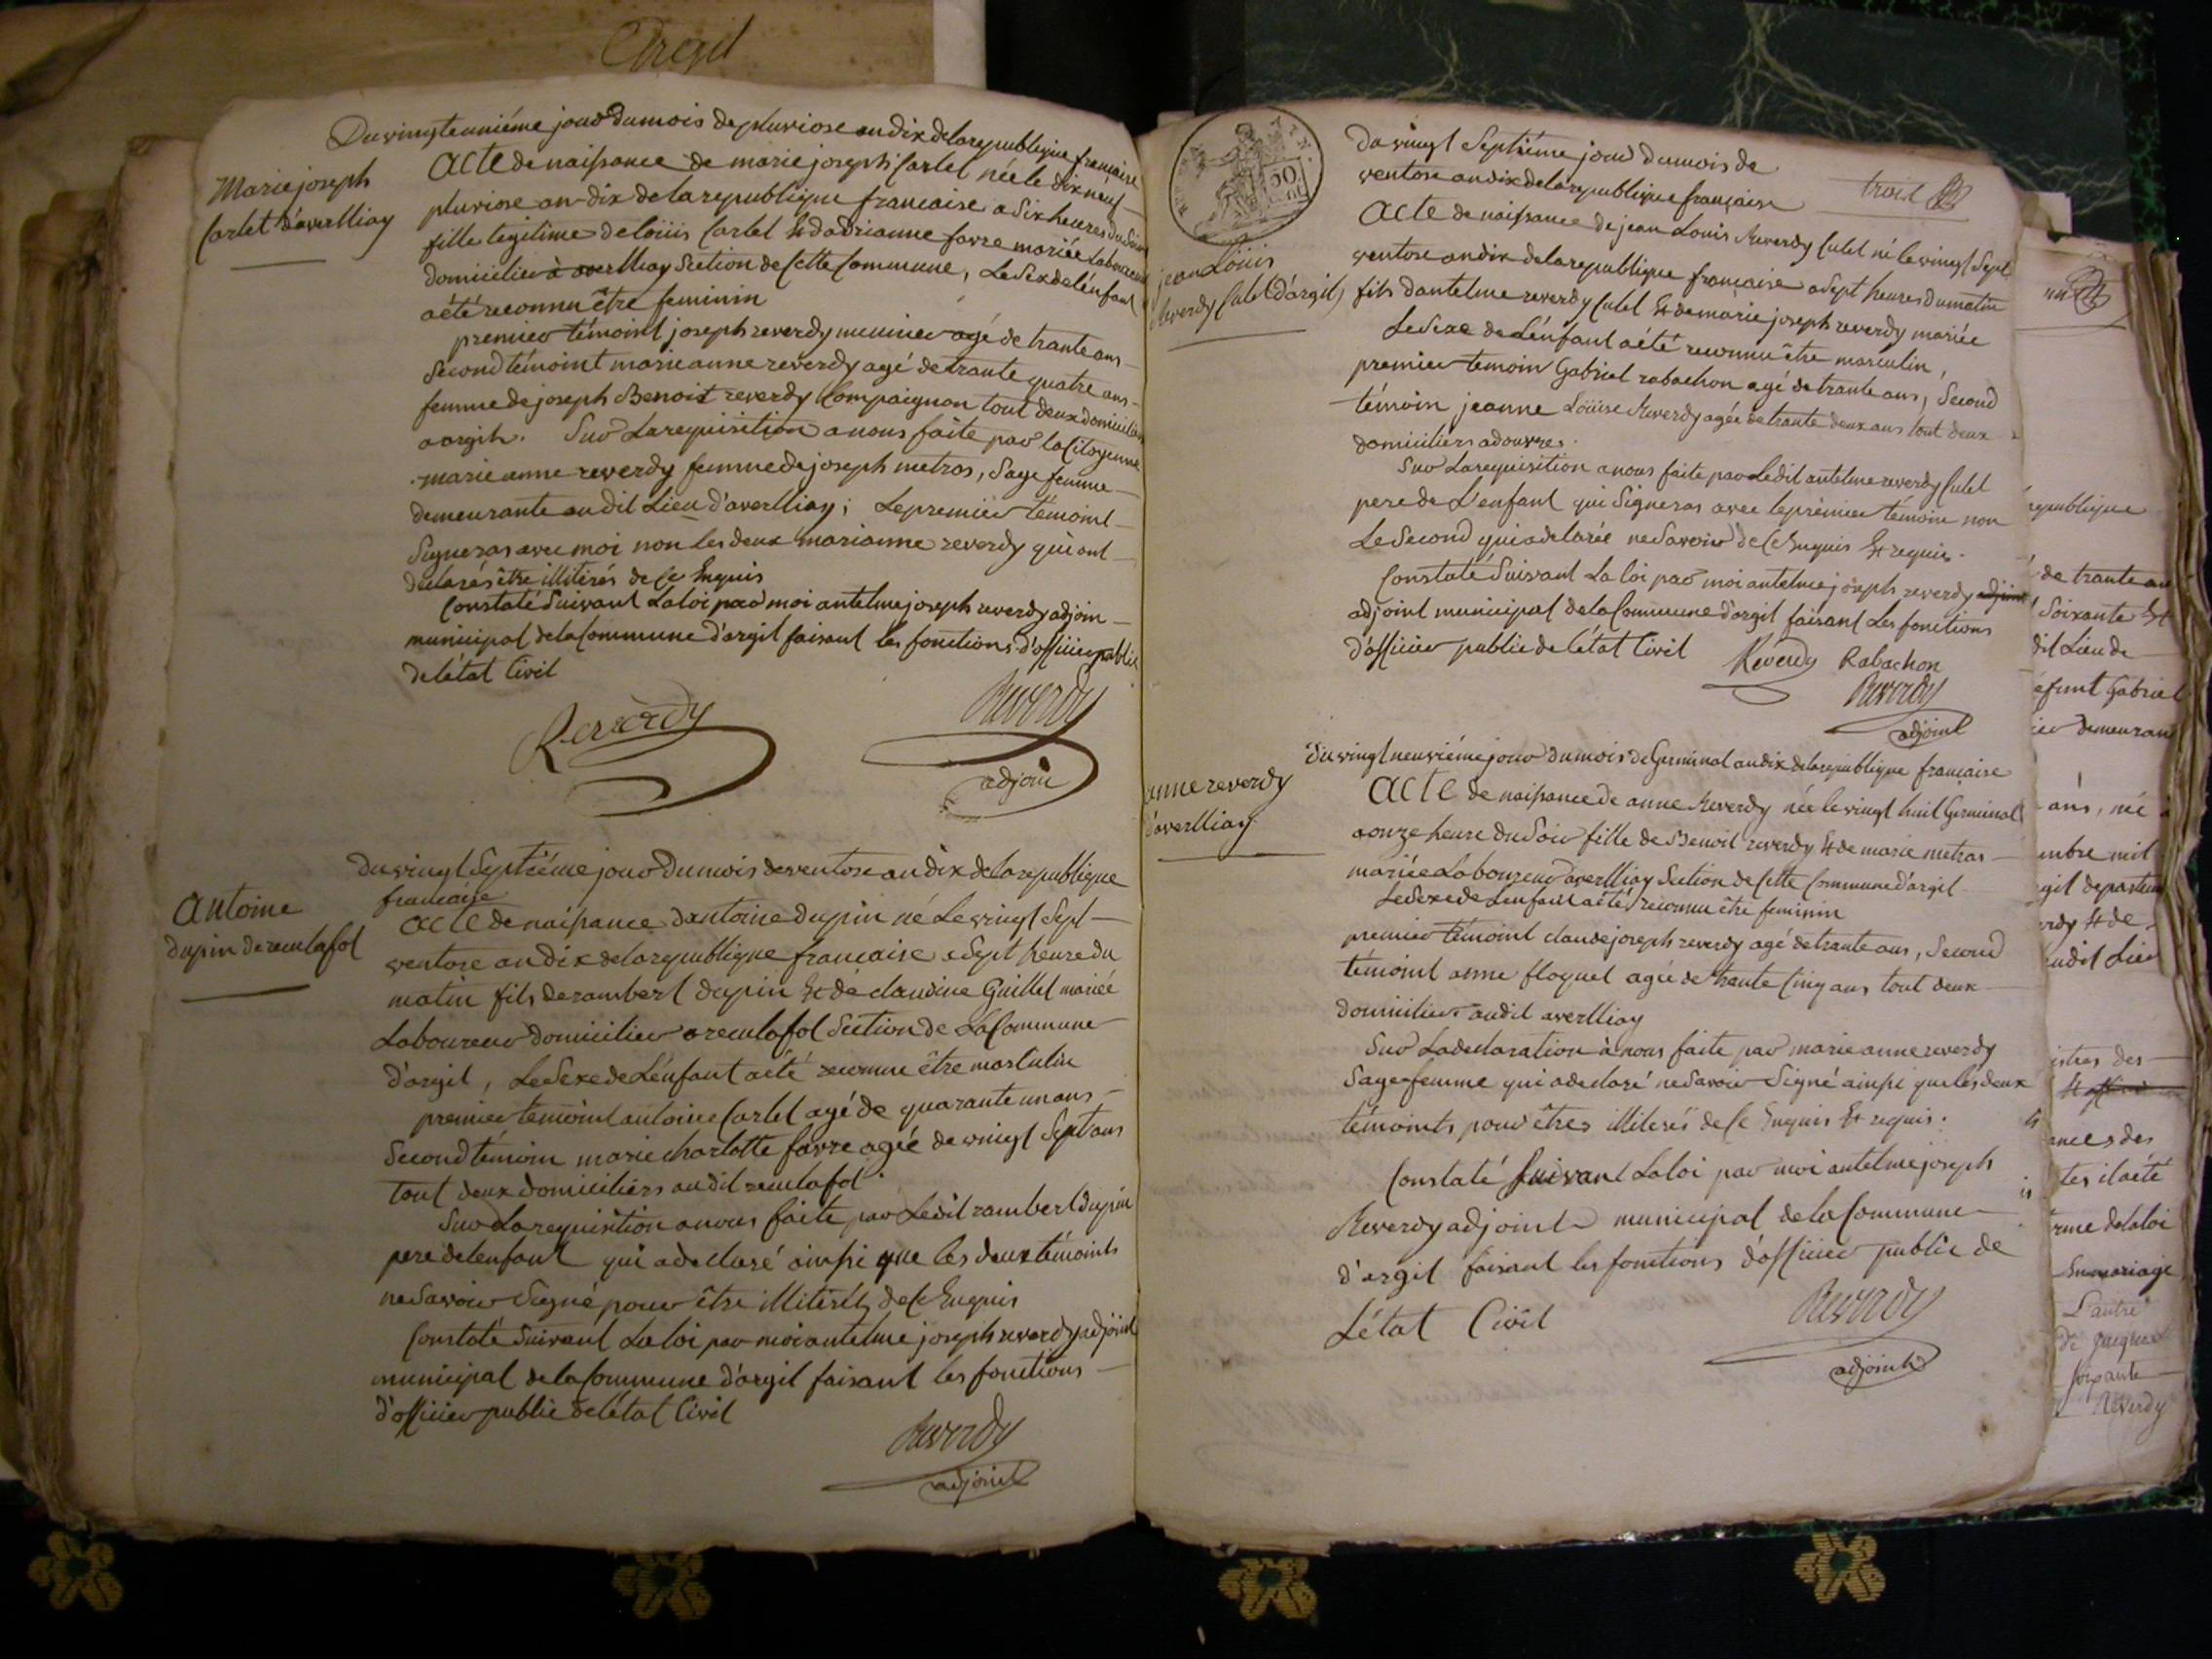 Argil
Du vingt uniéme jour du mois de pluviose an dix de la republique française
Marie joseph
Carlet d'averlliay
Acte de naissance de marie joseph Carlet née le dix neuf
pluviose an dix de la republique francaise a six heures du soir
fille legitime de loüis Carlet & d'adrianne favre mariée Laboureur
domicilier à averlliay Section de Cette Commune, Le Sex de lénfant
a été reconnu être feminin
premier témoint joseph reverdy munier agé de trante ans
Second témoint marie anne reverdy agé de trante quatre ans
femme de joseph Benoit reverdy Compaignon tout deux domiciliés
a argit. Sur La requisition a nous faite par la Citoyenne
marie anne reverdy femme de joseph metras, Sage femme
demeurante au dit Lieu d'averlliay; Le premier témoint
Signeras avec moi non les deux marianne reverdy qui ont
déclarés être illiterés de Ce Enquis
Constaté Suivant La loi par moi antelme joseph reverdy adjoin
municipal de la Commune d'argit faisant les fonctions d'officier public
de létat Civil
Reverdy
Reverdy
adjoin
du vingt Septiéme jour du mois de ventose an dix de la republique
francaise
Antoine
dupin de reculafol
Acte de naissance d'antoine dupin né Le vingt Sept
ventose an dix de la republique francaise a Sept heure du
matin fils de rambert dupin & de claudine Guillet mariée
Laboureur domicilier a reculafol Section de La Commune
d'argit, Le Sexe de Lénfant a été reconnu être masculin
premier temoint antoine Carlet agé de quarante un ans
Second témoin marie charlotte favre agée de vingt Sept ans
tout deux domiciliérs au dit reculafol
Sur La requisition a nous faite par Le dit rambert dupin
pere de lenfant qui a declaré ainsi que les deux témoints
ne Savoir Signé pour être illiterés de Ce Enquis
Constaté Suivant La loi par moi antelme joseph reverdy adjoint
municipal de la Commune d'argit faisant les fonctions
d'officier public de létat Civil
Reverdy
adjoint
50
du vingt Septiéme jour du mois de
ventose an dix de la republique française
troit
jean Loüis
reverdy Culet d'argit
Acte de naissance de jean Louis Reverdy Culet né le vingt Sept
ventose an dix de la republique française a Sept heures du matin
fils d'antelme reverdy Culet & de marie joseph reverdy mariée
Le Sexe de Lénfant a été reconnu être masculin,
premier temoin Gabriel rabachon agé de trante ans, Second
témoin jeanne Loüise Reverdy agée de trante deux ans tout deux
domiciliérs a douvres.
Sur La requisition a nous faite par Le dit antelme reverdy Culet
pere de L'enfant qui Signeras avec le prémier témoin non
Le Second qui a délarée ne Savoir de Ce Enquis & requis.
Constaté Suivant La loi par moi antelme joseph reverdy adjoint
adjoint municipal de la Commune d'argit faisant Les fonctions
d'officier public de létat Civil
Reverdy Rabachon
Reverdy
adjoint
du vingt neuviéme jour du mois de Germinal an dix de la republique française
anne reverdy
d'averlliay
Acte de naissance de anne Reverdy née le vingt huit Germinal
a onze heure du Soir fille de Benoit reverdy & de marie metras
mariée Laboureur averlliay Section de Cette Commune d'argit
Le Sexe de Lenfant a été reconnu être feminin
premier témoint claude joseph reverdy agé de trante ans, Second
témoint anne floquet agée de trante Cinq ans tout deux
domiciliers au dit averlliay
Sur La declaration à nous faite par marie anne reverdy
Sage femme qui a declaré ne Savoir Signé ainsi que les deux
témoints pour êtres illiterés de Ce Enquis & requis.
Constaté Suivant La loi par moi antelme joseph
Reverdy adjoint municipal de la Commune
d'argit faisant les fonctions d'officier public de
L'état Civil
Reverdy
adjoint
republique
de trante an
Soixante &
dit Lieu de
éfunt Gabriel
demeuran
ans, né
embre mil
rdy & de
udit Lieu
istres des
ances des
tes il a été
rme de la loi
En mariage
L'autre
Soixante
Reverdy